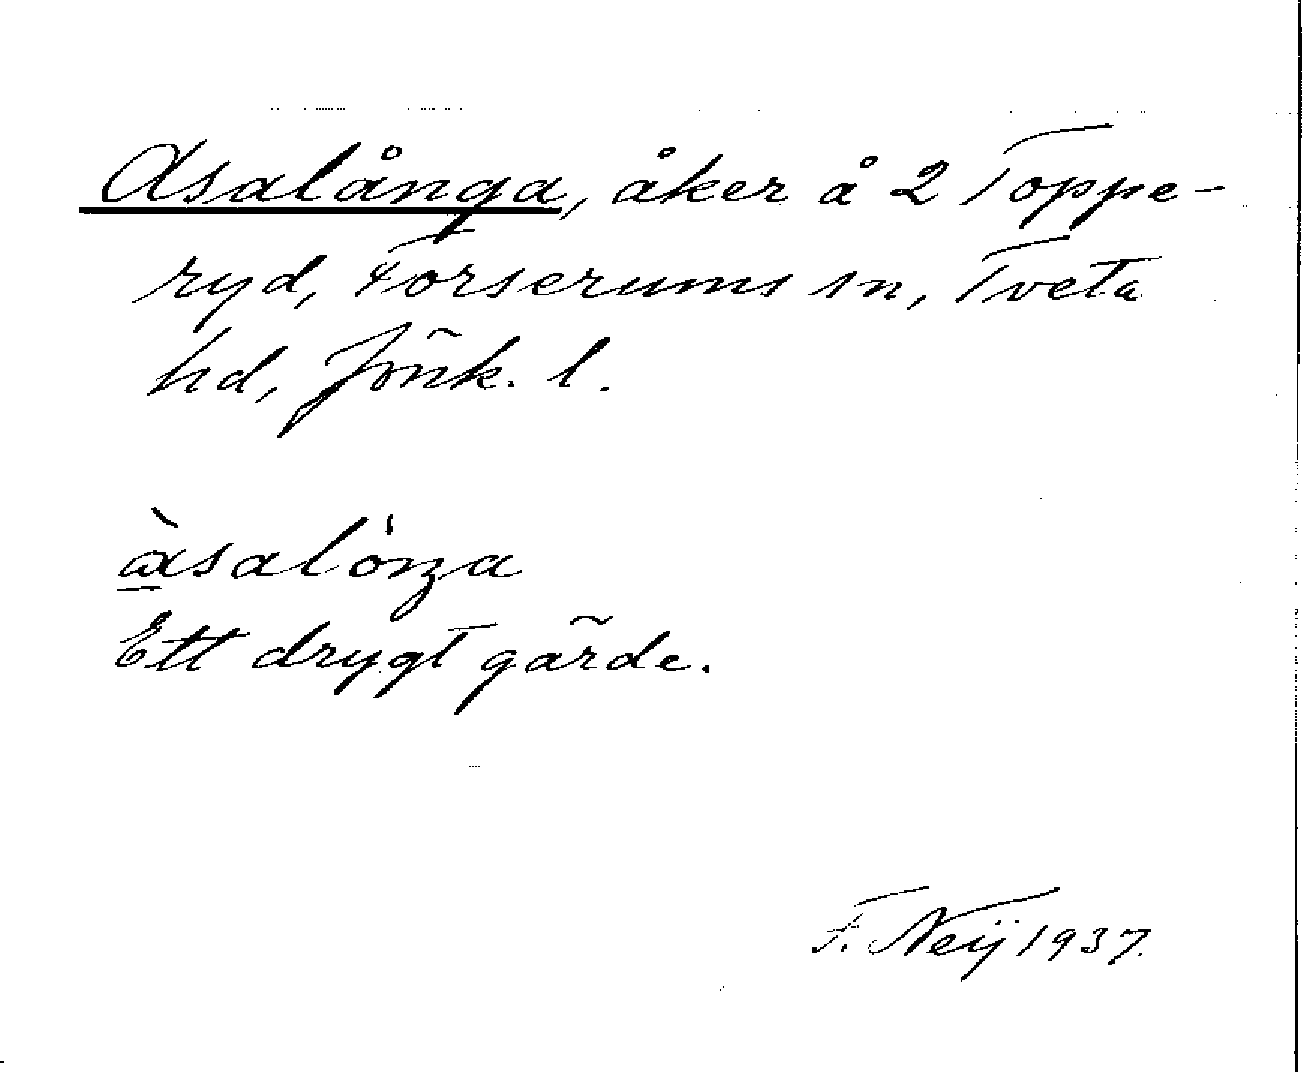 Asalånga, åker å 2 Toppe-
ryd, Forserums sn, Tveta
hd, Jönk. l.
àsalóŋa
Ett drygt gärde.
F. Neij 1937.